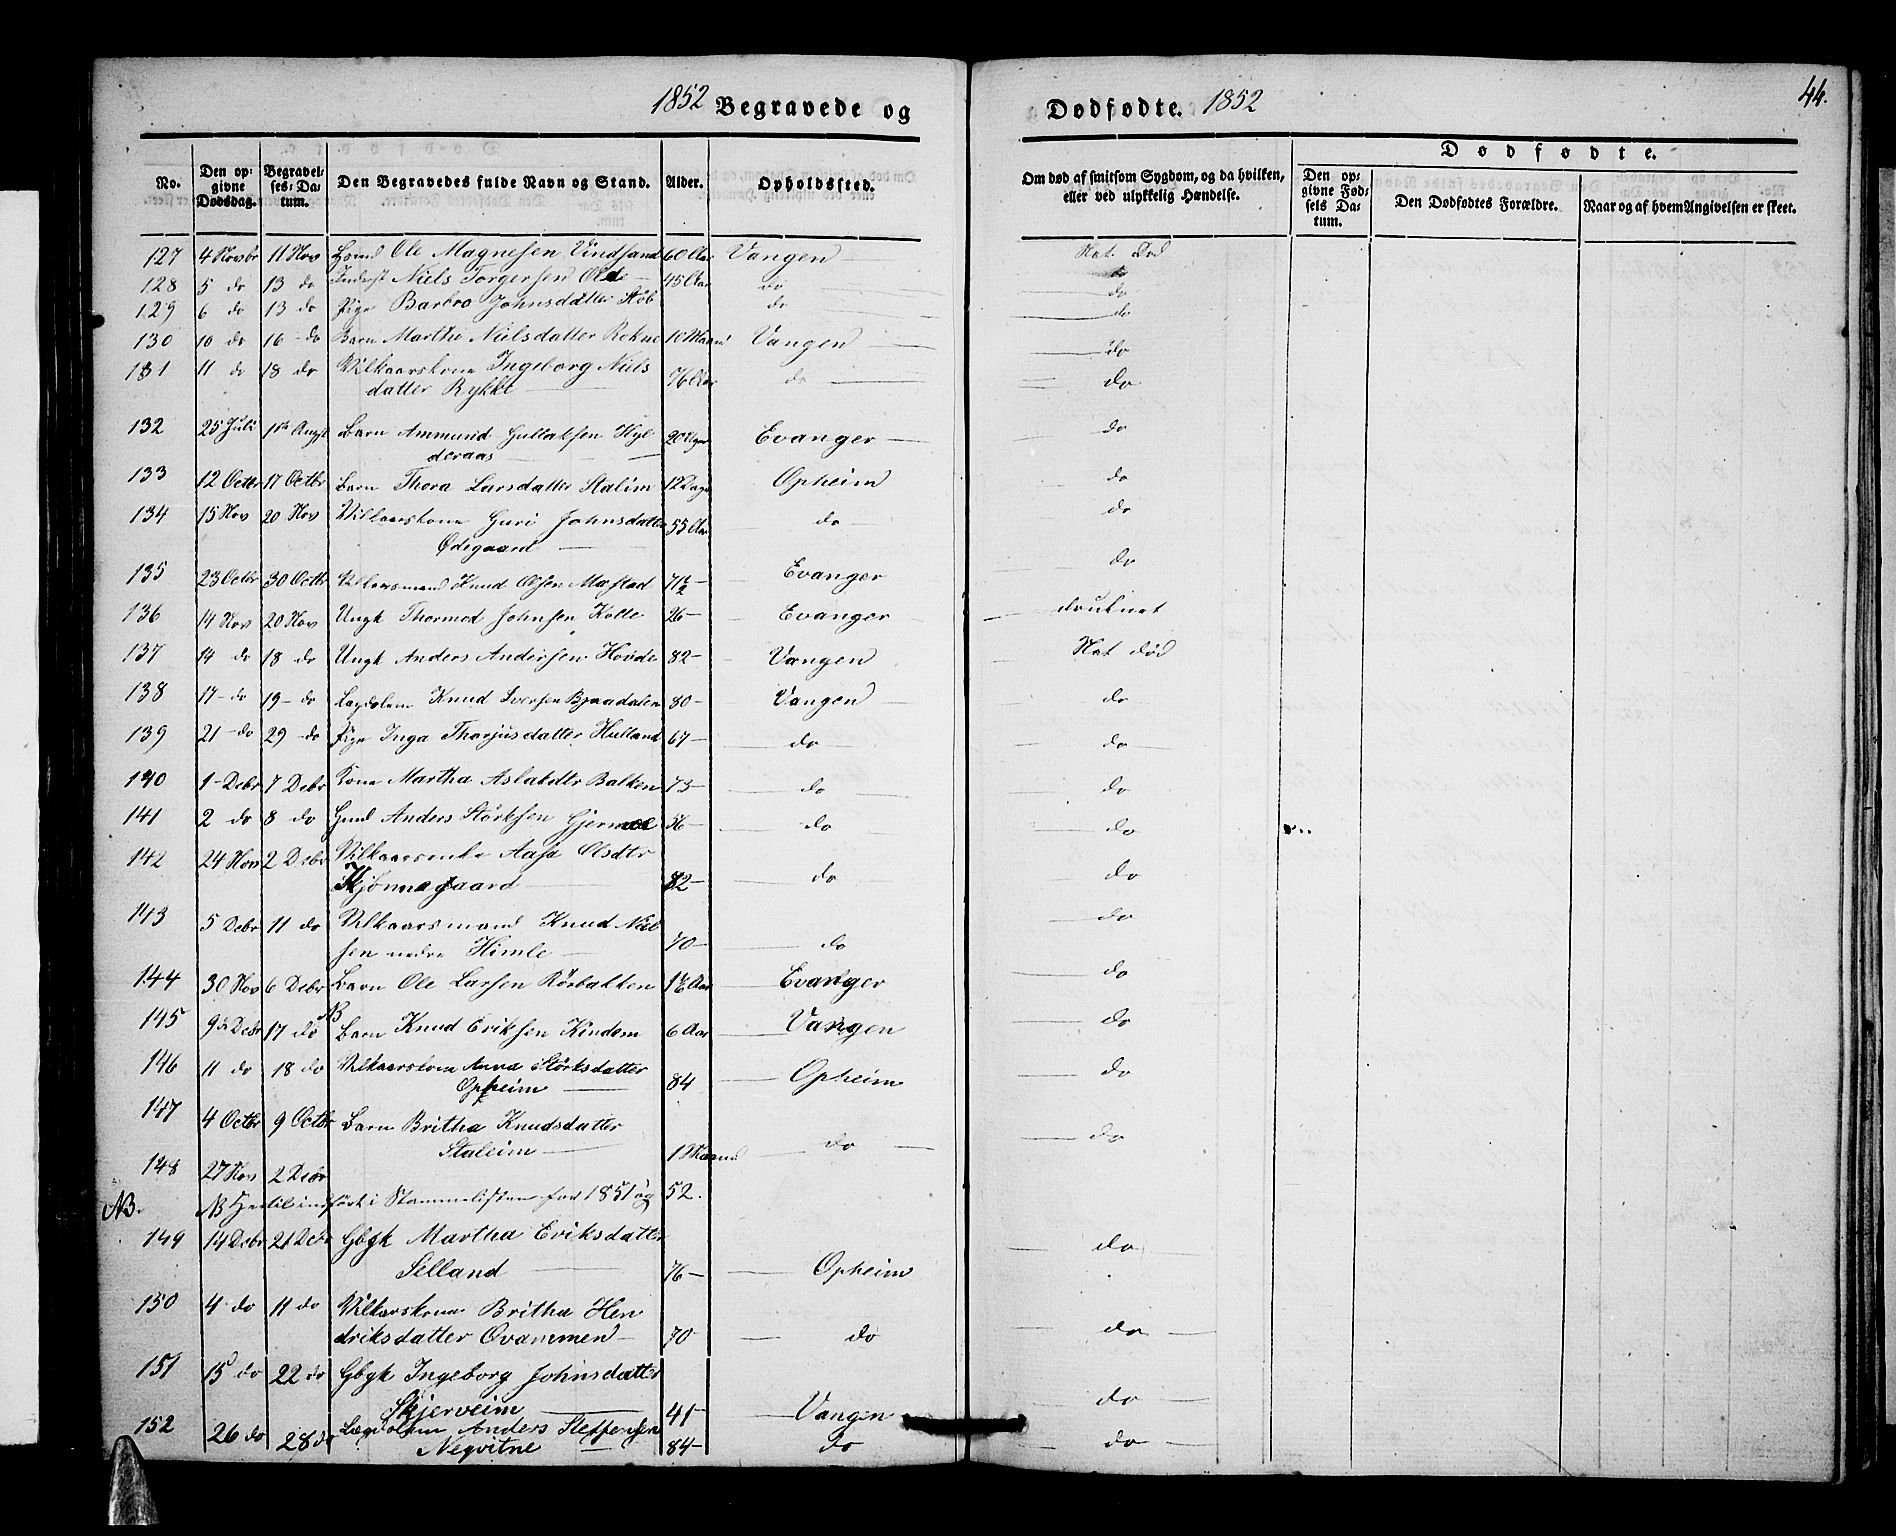 1852 Begravede og
Dødfødte. 1852
44.
No.
Den opgivne Dødsdag.
Begravelses-Datum.
Den Begravedes fulde Navn og Stand.
Alder.
Opholdssted.
Om død af smitsom Sygdom, og da hvilken, eller ved ulykkelig Hændelse.
Dødfødte.
Den opgivne Fødsels Datum.
Den Dødfødtes Forældre.
Naar og af hvem Angivelsen er skeet.
127 4 Novbr 11 Nov Ole Magnesen Vindsand 60 Aar Vangen Nat. Død
128 5 do 13 do Inderst Niels Torgersen Olde 45 Aar do do
129 6 do 13 do Pige Barbro Johnsdatter do do
130 10 do 16 do Barn Martha Nielsdatter Rekne 10 Maan Vangen do
131 11 do 18 do Vilkaarskone Ingeborg Niels
datter Rykke 76 Aar do do
132 25 Juli Augst Barn Ammund Gullaksen Hyl
deraas 20 Uger Evanger do
133 12 Octbr 17 Octbr Barn Thora Larsdatter Stalim 12 Dage Opheim do
134 15 Nov 20 Nov Vilkaarskone Guri Johnsdatter
Ødegaard 55 Aar do do
135 23 Octbr 30 Octbr Knud Olsen Mæstad 71½ Evanger do
136 14 Nov 20 Nov Ungk Thormod Johnsen Kolle 26 Evanger druknet
137 14 do 18 do Ungk Anders Andersen Hovde 82 Vangen Nat død
138 17 do 19 do Lægdslem Knud Iversen Bjaadalen 80 Vangen do
139 21 do 29 do Pige Inga Thorjusdatter Hulland 67 do do
140 1 Debr 7 Debr Kone Martha Aslakdtr Balken 73 do do
141 2 do 8 do Anders Størksen 36 do do
142 24 Nov 2 Debr Vilkaarsenke Aasa Olsdtr
Kjønnagaard 82 do do
143 5 Debr 11 do Vilkaarsmand Knud Niel
sen nedre Himle 70 do do
144 30 Nov 6 Debr Barn Ole Larsen Rørbakken 1½ Aar Evanger do
145 9de Debr 17 do NB Barn Knud Eriksen Kindem 6 Aar Vangen do
146 11 do 18 do Vilkaarskone Anna Størksdatter
Opheim 84 Opheim do
147 4 Octbr 9 Octbr Barn Britha Knudsdatter
Staleim 1 Maaned do do
148 27 Nov 2 Debr
NB. NB Hertil indført i Stammelisten for 1851 og 52.
149 14 Debr 21 Debr Gbgk Martha Eriksdatter
Selland 76 Opheim do
150 4 do 11 do Vilkaarskone Britha Hen
driksdatter Qvammen 70 do do
151 15 do 22 do Gbgk Ingeborg Johnsdatter
Skjerveim 41 Vangen do
152 26 do 28 do Lægdslem Anders Steffensen
Neqvitne 84 do do